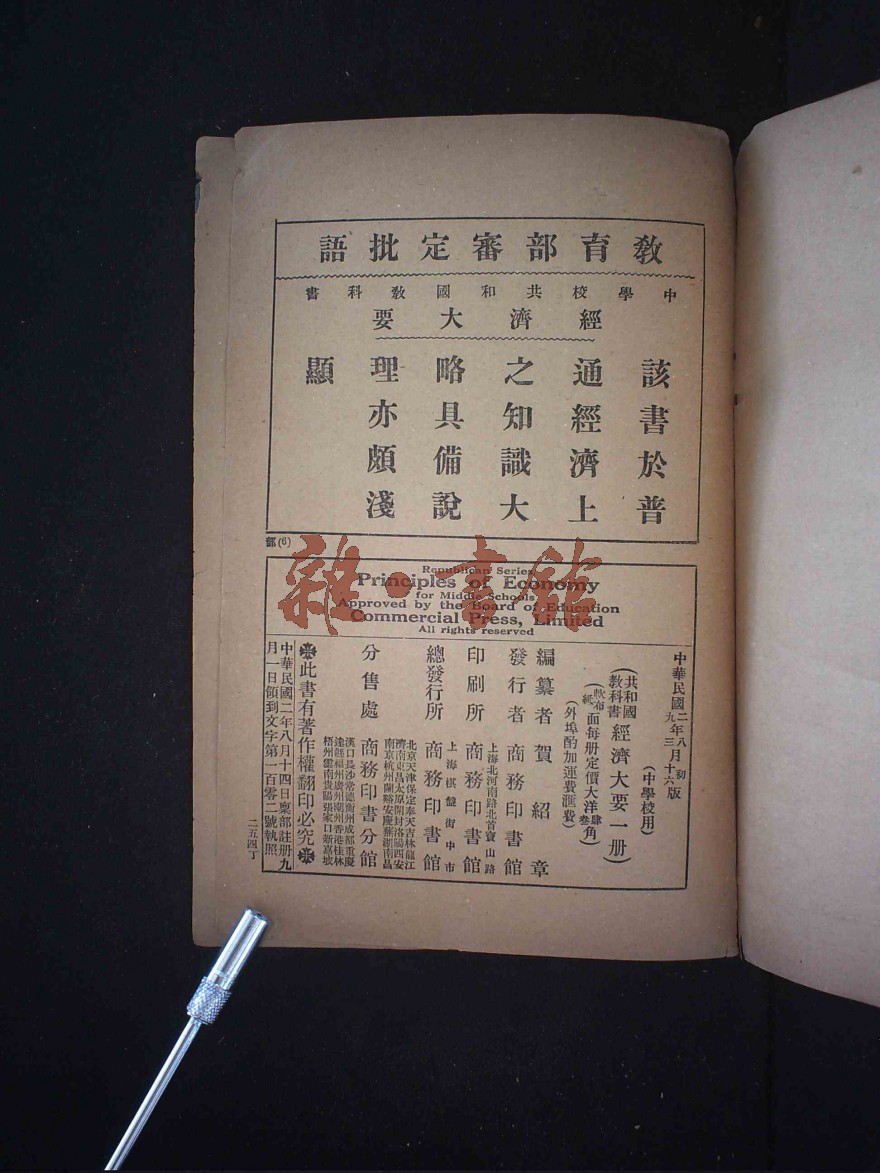 教育部審定批語
中學校共和國教科書
經濟大要
該書於普
通經濟上
之知識大
略具備說
理亦頗淺
顯
部(6)
Republican Series
Principles of Economy
for Middle Schools
Approved by the Board of Education
Commercial Press, Limited
All rights reserved
雜·書館
中華民國二年八月初版
九年三月十六版
(中學校用)
(共和國教科書經濟大要一册)
(軟布面每册定價大洋肆角)
紙叁
(外埠酌加運費滙費)
編纂者 賀紹章
發行者 商務印書館
上海北河南路北首寶山路
印刷所 商務印書館
上海棋盤街中市
總發行所 商務印書館
北京天津保定奉天吉林龍江
濟南東昌太原開封洛陽西安
南京杭州蘭谿安慶蕪湖南昌
分售處 商務印書分館
漢口長沙常德衡州成都重慶
福州廣州潮州香港桂林
梧州雲南貴陽張家口新嘉坡
此書有著作權翻印必究
中華民國二年八月十四日稟部註册九
月一日領到文字第一百零二號執照
二五四丁